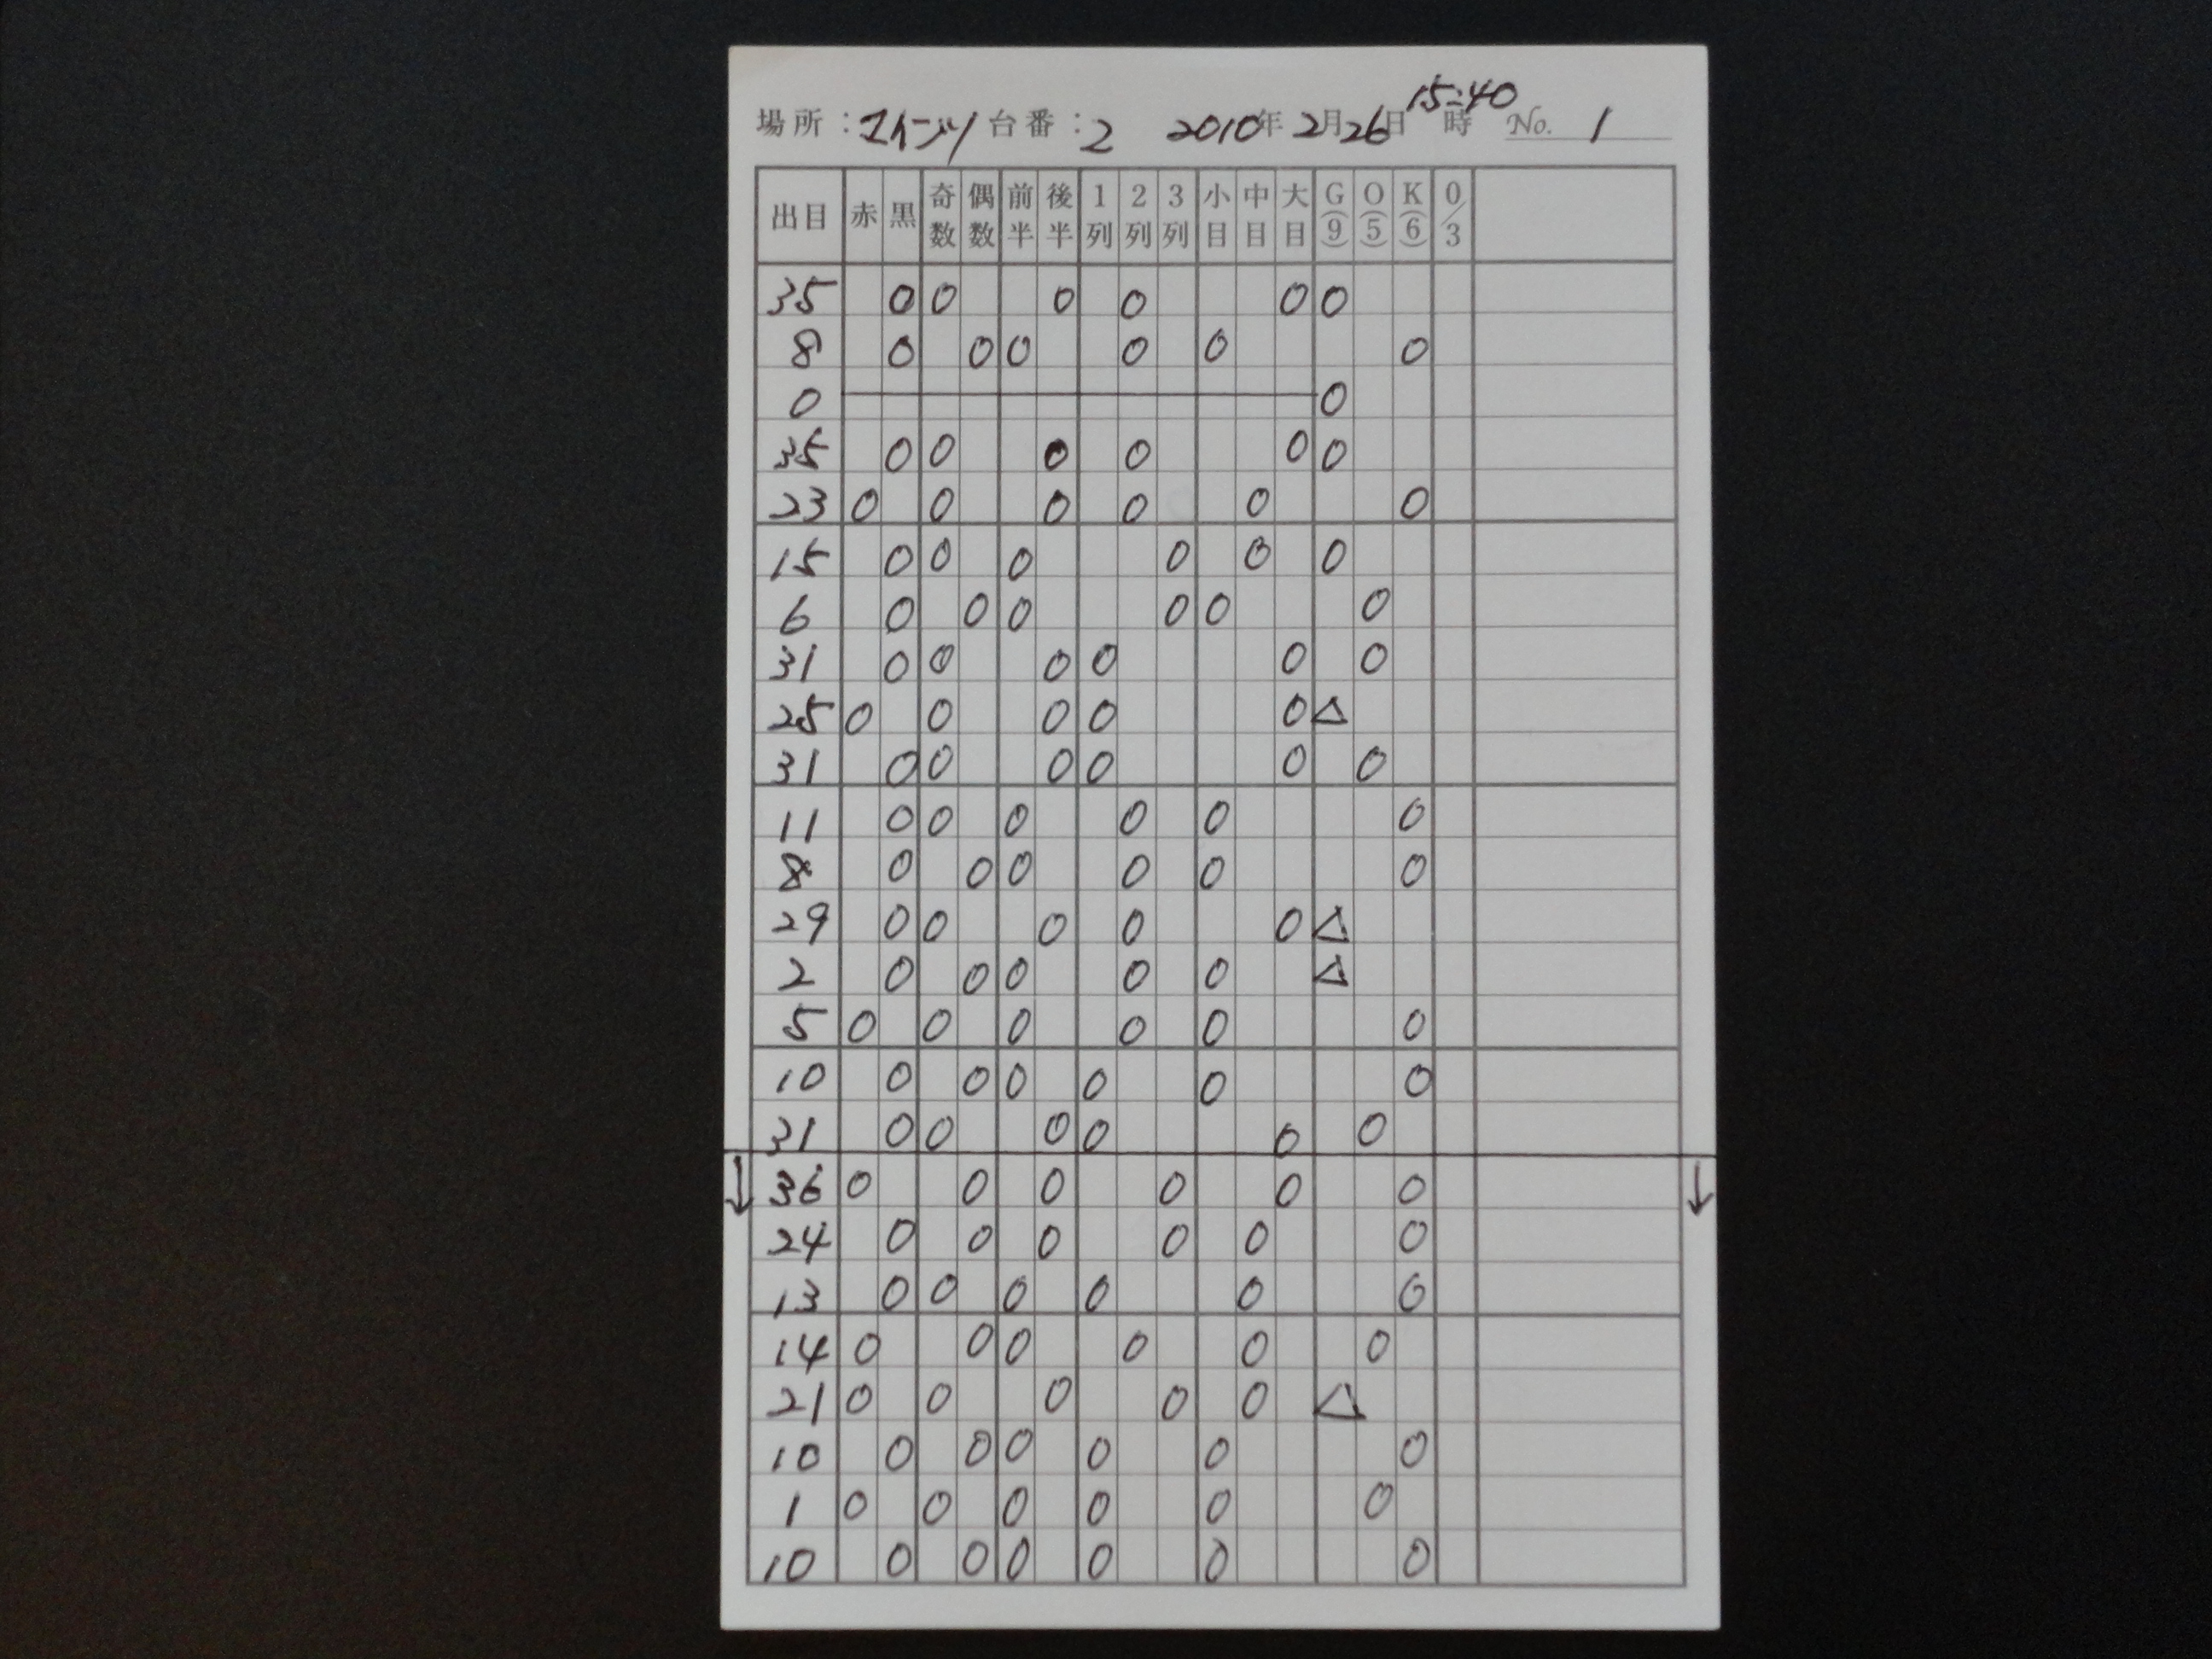 場所：エイジツ 台番：2 2010年2月26日15:40時 No. 1
出目 赤 黒 奇数 偶数 前半 後半 1列 2列 3列 小目 中目 大目 G(9) O(5) K(6) 0/3
35 0 0 0 0 0 0
8 0 0 0 0 0 0
0 0
35 0 0 0 0 0 0
23 0 0 0 0 0 0
15 0 0 0 0 0 0
6 0 0 0 0 0 0
31 0 0 0 0 0 0
25 0 0 0 0 0 △
31 0 0 0 0 0 0
11 0 0 0 0 0 0
8 0 0 0 0 0 0
29 0 0 0 0 0 △
2 0 0 0 0 0 △
5 0 0 0 0 0 0
10 0 0 0 0 0 0
31 0 0 0 0 0 0
↓ 36 0 0 0 0 0 0 ↓
24 0 0 0 0 0 0
13 0 0 0 0 0 0
14 0 0 0 0 0 0
21 0 0 0 0 0 △
10 0 0 0 0 0 0
1 0 0 0 0 0 0
10 0 0 0 0 0 0